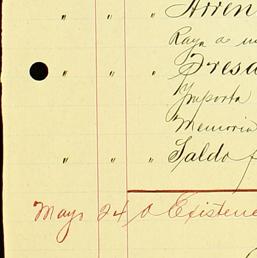 " " " Arren
Raya de
" " " Tresa
Importa
Memoria
" " " Saldo
Mayo 24 a Existenc